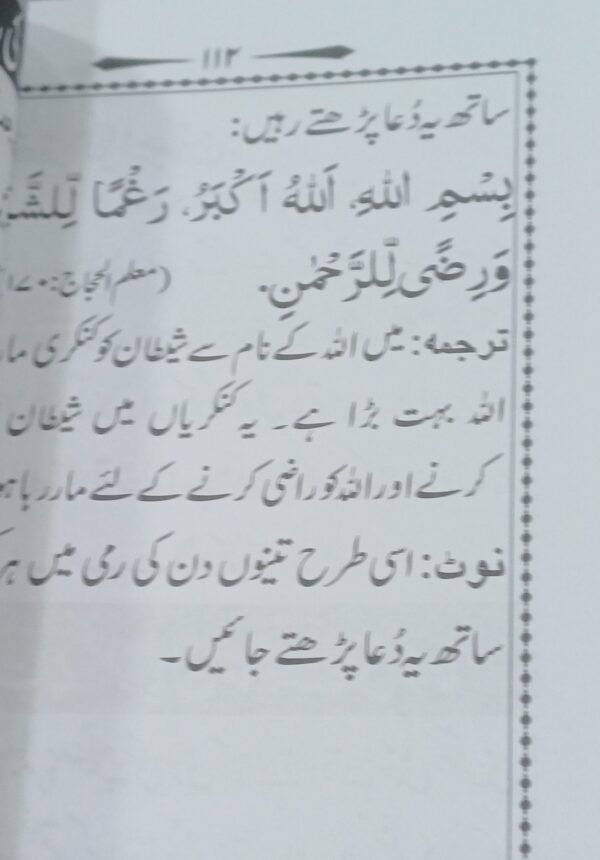 ۱۱۲
ساتھ یہ دُعا پڑھتے رہیں:
بِسْمِ اللهِ، اَللهُ اَكْبَرُ، رَغْمًا
وَرِضًى لِّلرَّحْمٰنِ. (معلم الحجاج: ۱۷۰
ترجمہ: میں اللہ کے نام سے شیطان کو کنکری
اللہ بہت بڑا ہے۔ یہ کنکریاں میں شیطان
کرنے اور اللہ کو راضی کرنے کے لئے مار رہا
نوٹ: اسی طرح تینوں دن کی رمی میں
ساتھ یہ دُعا پڑھتے جائیں۔